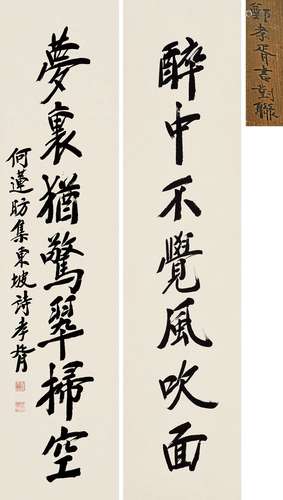 鄭孝胥書對聯
醉中不覺風吹面
夢裏猶驚翠掃空
何蓮舫集東坡詩孝胥